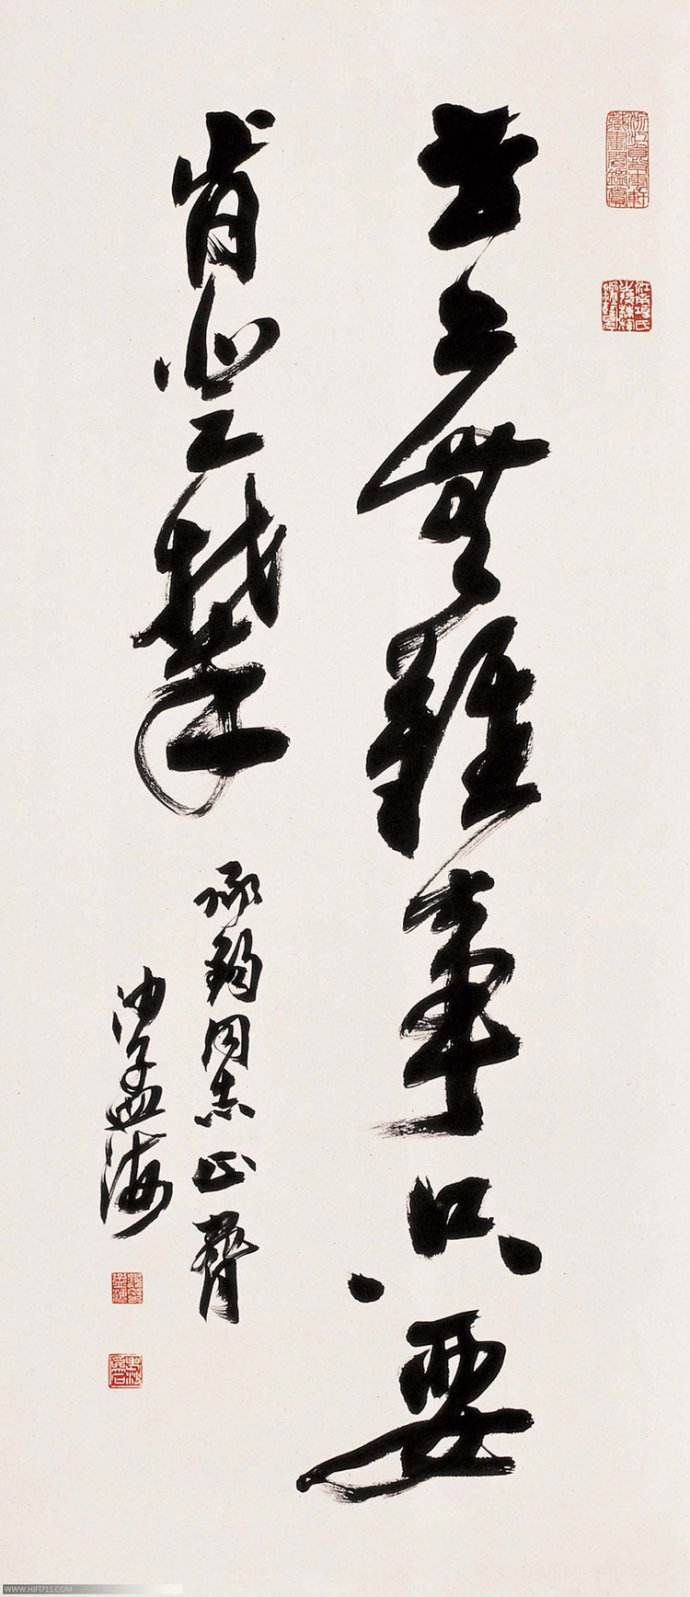 世上無難事只要
肯登攀
承鈞同志正
沙孟海